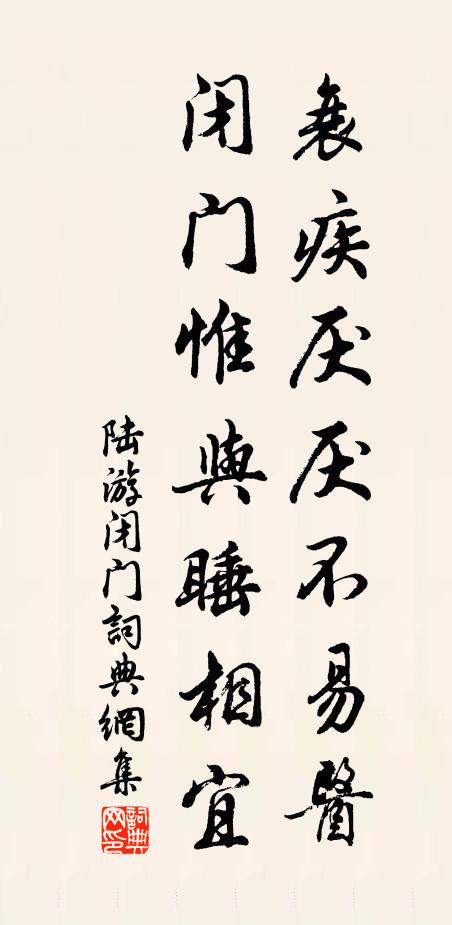 衰疾厌厌不易醫
闭门惟與睡相宜
陆游闭门詞典網集
詞典网印